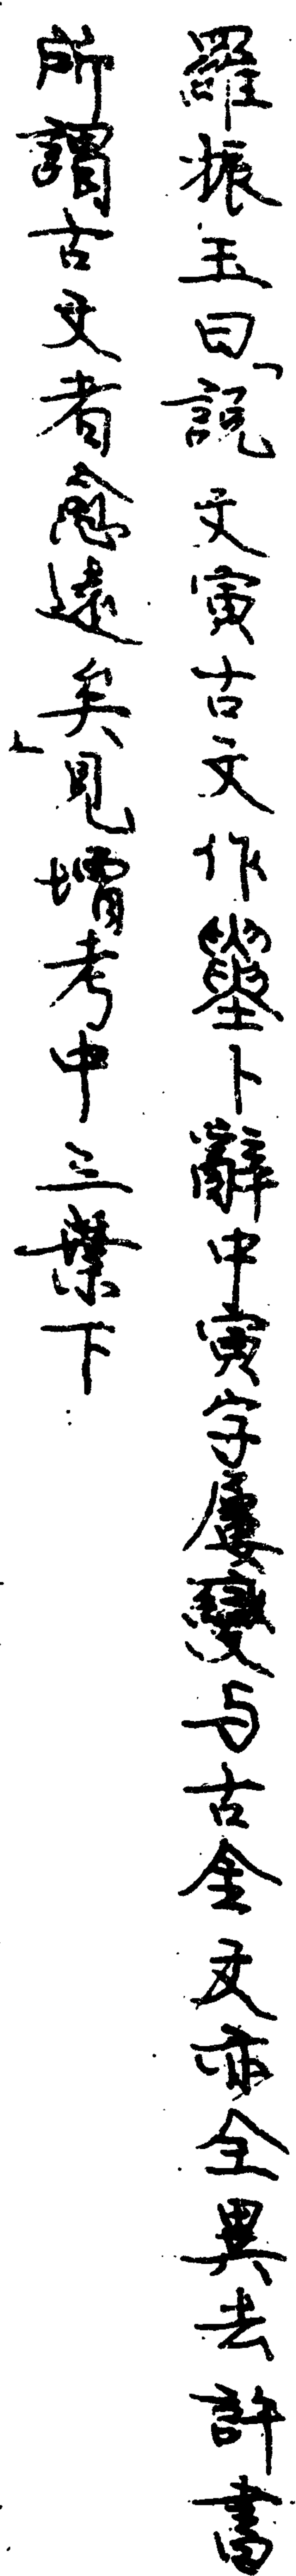 羅振玉曰「說文寅古文作𡻧卜辭中寅字屢變与古金文亦全異去許書
所謂古文者愈遠矣」見增考中三葉下